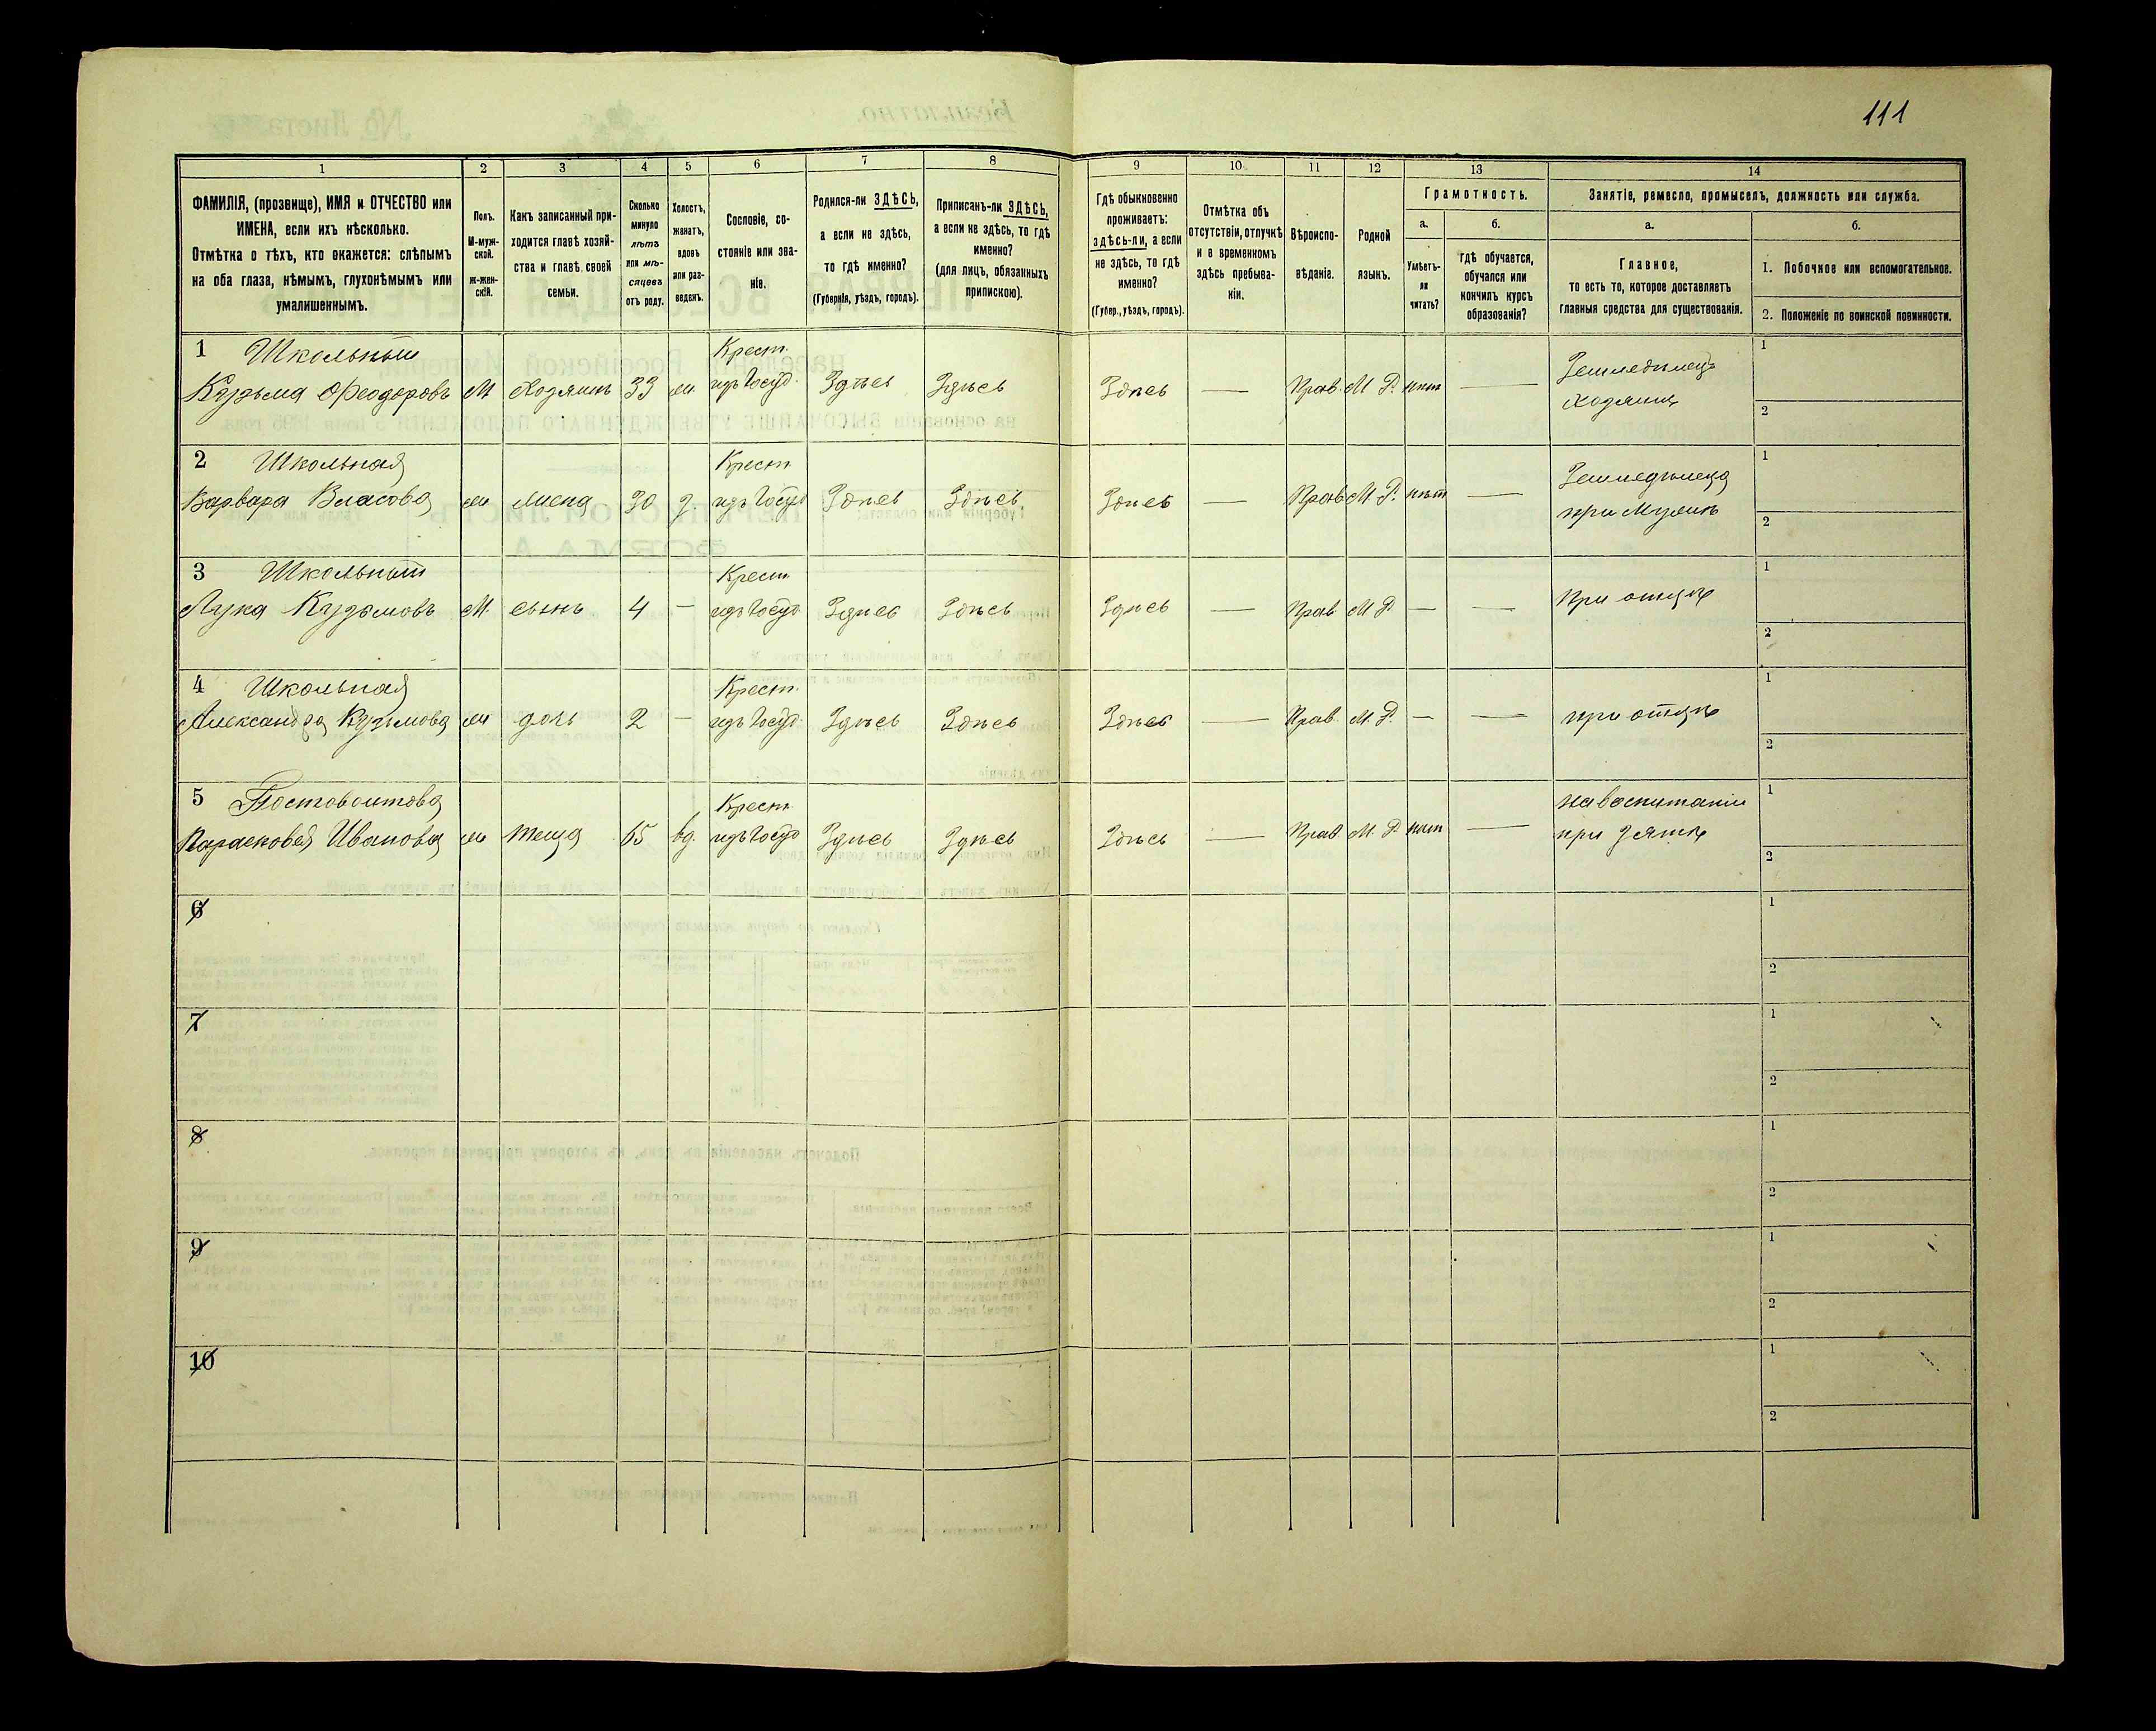 111
1
2
3
4
5
6
7
8
9
10
11
12
13
14
ФАМИЛІЯ, (прозвище), ИМЯ и ОТЧЕСТВО или
ИМЕНА, если ихъ нѣсколько.
Отмѣтка о тѣхъ, кто окажется: слѣпымъ
на оба глаза, нѣмымъ, глухонѣмымъ или
умалишеннымъ.
Полъ.
М-муж-
ской.
ж-жен-
скій.
Какъ записанный при-
ходится главѣ хозяй-
ства и главѣ своей
семьи.
Сколько
минуло
лѣтъ
или мѣ-
сяцевъ
отъ роду.
Холостъ,
женатъ,
вдовъ
или раз-
веденъ.
Сословіе, со-
стояніе или зва-
ніе.
Родился-ли ЗДѢСЬ,
а если не здѣсь,
то гдѣ именно?
(Губернія, уѣздъ, городъ).
Приписанъ-ли ЗДѢСЬ,
а если не здѣсь, то гдѣ
именно?
(для лицъ, обязанныхъ
припискою).
Гдѣ обыкновенно
проживаетъ:
здѣсь-ли, а если
не здѣсь, то гдѣ
именно?
(Губер., уѣздъ, городъ).
Отмѣтка объ
отсутствіи, отлучкѣ
и в временномъ
здѣсь пребыва-
ніи.
Вѣроиспо-
вѣданіе.
Родной
языкъ.
Грамотность.
а.
Умѣетъ-
ли
читать?
б.
гдѣ обучается,
обучался или
кончилъ курсъ
образованія?
Занятіе, ремесло, промыселъ, должность или служба.
а.
Главное,
то есть то, которое доставляетъ
главныя средства для существованія.
б.
1. Побочное или вспомогательное.
2. Положеніе по воинской повинности.
1 Школьный Крест. Земледѣлецъ 1
Кузьма Ѳеодоровъ М Хозяинъ 33 ж. изъ Госуд. Здѣсь Здѣсь Здѣсь — Прав. М. Р. нѣт — хозяинъ
2
2 Школьная Крест. Земледѣлецъ 1
Варвара Власова ж жена 30 з. изъ Госуд Здѣсь Здѣсь Здѣсь — Прав М. Р. нѣт — при Мужѣ
2
3 Школьный Крест. 1
Лука Кузьмовъ М сынъ 4 — изъ Госуд Здѣсь Здѣсь Здѣсь — Прав М Р — — При отцѣ
2
4 Школьная Крест. 1
Александра Кузьмова ж дочь 2 — изъ Госуд. Здѣсь Здѣсь Здѣсь — Прав. М. Р. — — при отцѣ
2
5 Постовоитова Крест. на воспитаніи 1
Парасковея Иванова ж теща 65 вд. изъ Госуд Здѣсь Здѣсь Здѣсь — Прав М. Р. нѣт — при зятѣ
2
6 1
2
7 1
2
8 1
2
9 1
2
10 1
2